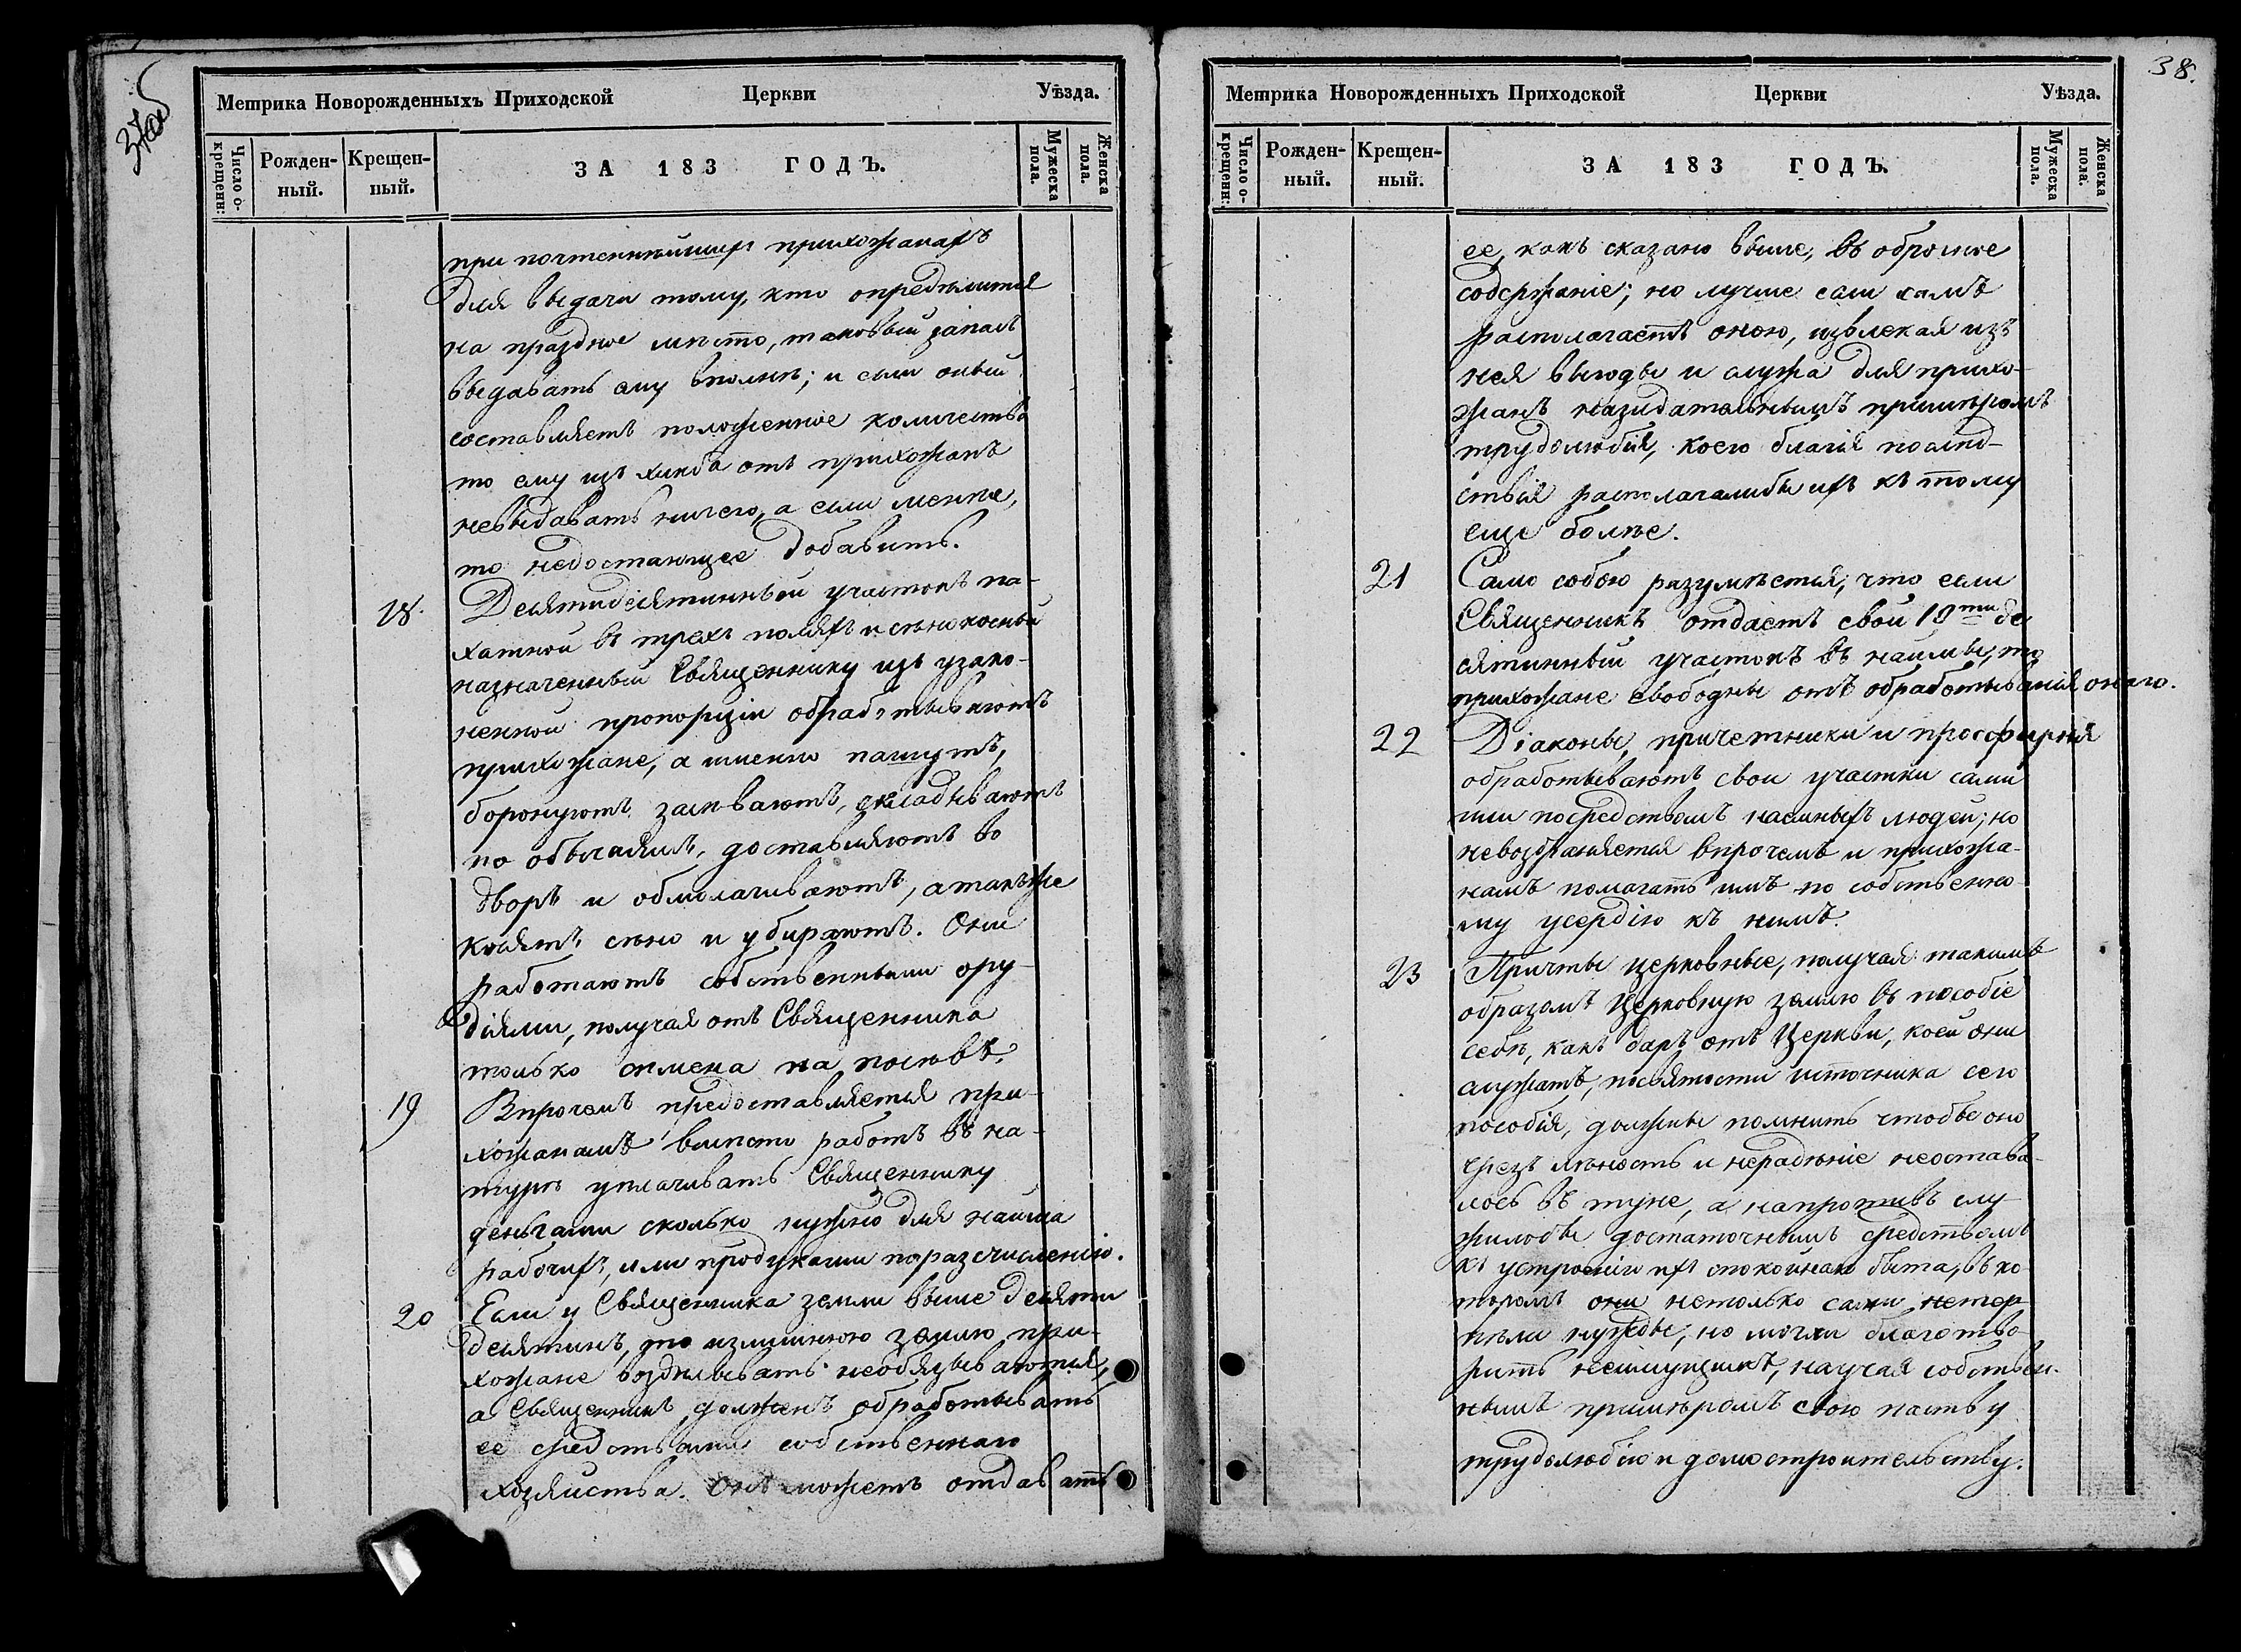 37об
Метрика Новорожденныхъ Приходской Церкви Уѣзда.
Число о-
крещенн:
Рожден-
ный.
Крещен-
ный.
ЗА 183 ГОДЪ.
Мужеска
пола.
Женска
пола.
при почтеннѣйшихъ прихожанахъ
для выдачи тому, кто опредѣлится
на праздное мѣсто, таковый запасъ
выдавать ему вполнѣ; и если оный
составляетъ положенное количество
то ему изъ хлѣба отъ прихожанъ
невыдавать ничего, а если менѣе,
то недостающее добавить.
18. Десятидесятинный участокъ па-
хатной въ трехъ поляхъ и сѣнокосный
назначенный Священнику изъ узако-
ненной пропорціи обработываютъ
прихожане, а именно пашутъ,
боронуютъ, засѣваютъ, складываютъ
по обычаямъ, доставляютъ во
дворъ и обмолачиваютъ, а такъже
косятъ сѣно и убираютъ. Они
работаютъ собственными ору-
діями, получая отъ Священника
только сѣмена на посѣвъ.
19 Впрочемъ предоставляется при-
хожанамъ вмѣсто работъ въ на-
турѣ уплачивать Священнику
деньгами сколько нужно для найма
рабочихъ, или продуками поразсчисленію.
20 Если у Священника земли выше десяти
десятинъ, то излишнюю землю при-
хожане воздѣлывать необязываются,
а Священникъ долженъ обработывать
ее средствами собственнаго
хозяйства. Онъ можетъ отдавать
38.
Метрика Новорожденныхъ Приходской Церкви Уѣзда.
Число о-
крещенн:
Рожден-
ный.
Крещен-
ный.
ЗА 183 ГОДЪ.
Мужеска
пола.
Женска
пола.
ее, какъ сказано выше, въ оброчное
содержаніе; но лучше если самъ
располагаетъ оною, извлекая изъ
нея выгоды и служа для прихо-
жанъ назидательнымъ примѣромъ
трудолюбія, коего благія послѣд-
ствія располагалибы ихъ къ тому
еще болѣе.
21 Само собою разумѣется, что если
Священникъ отдастъ свой 10ти де
сятинный участокъ въ наймы, то
прихожане свободны отъ обработыванія онаго.
22 Діаконы, причетники и просфирня
обработываютъ свои участки сами
или посредствомъ наемныхъ людей; но
невозбраняется впрочемъ и прихожа-
намъ помагать имъ по собственно-
му усердію къ нимъ.
23 Причты церковные, получая такимъ
образомъ Церковную землю въ пособіе
себѣ, какъ даръ отъ Церкви, коей они
служатъ, посвятости источника сего
пособія, должны помнить чтобы оно
чрезъ лѣность и нерадѣніе неостава-
лось въ туне, а напротивъ слу-
жилобы достаточнымъ средствомъ
къ устроенію ихъ спокойнаго быта, въ ко
торомъ они нетолько сами нетер-
пѣли нужды, но могли благотво-
рить неимущимъ, научая собствен-
нымъ примѣромъ свою паству
трудолюбію и домостроительству.